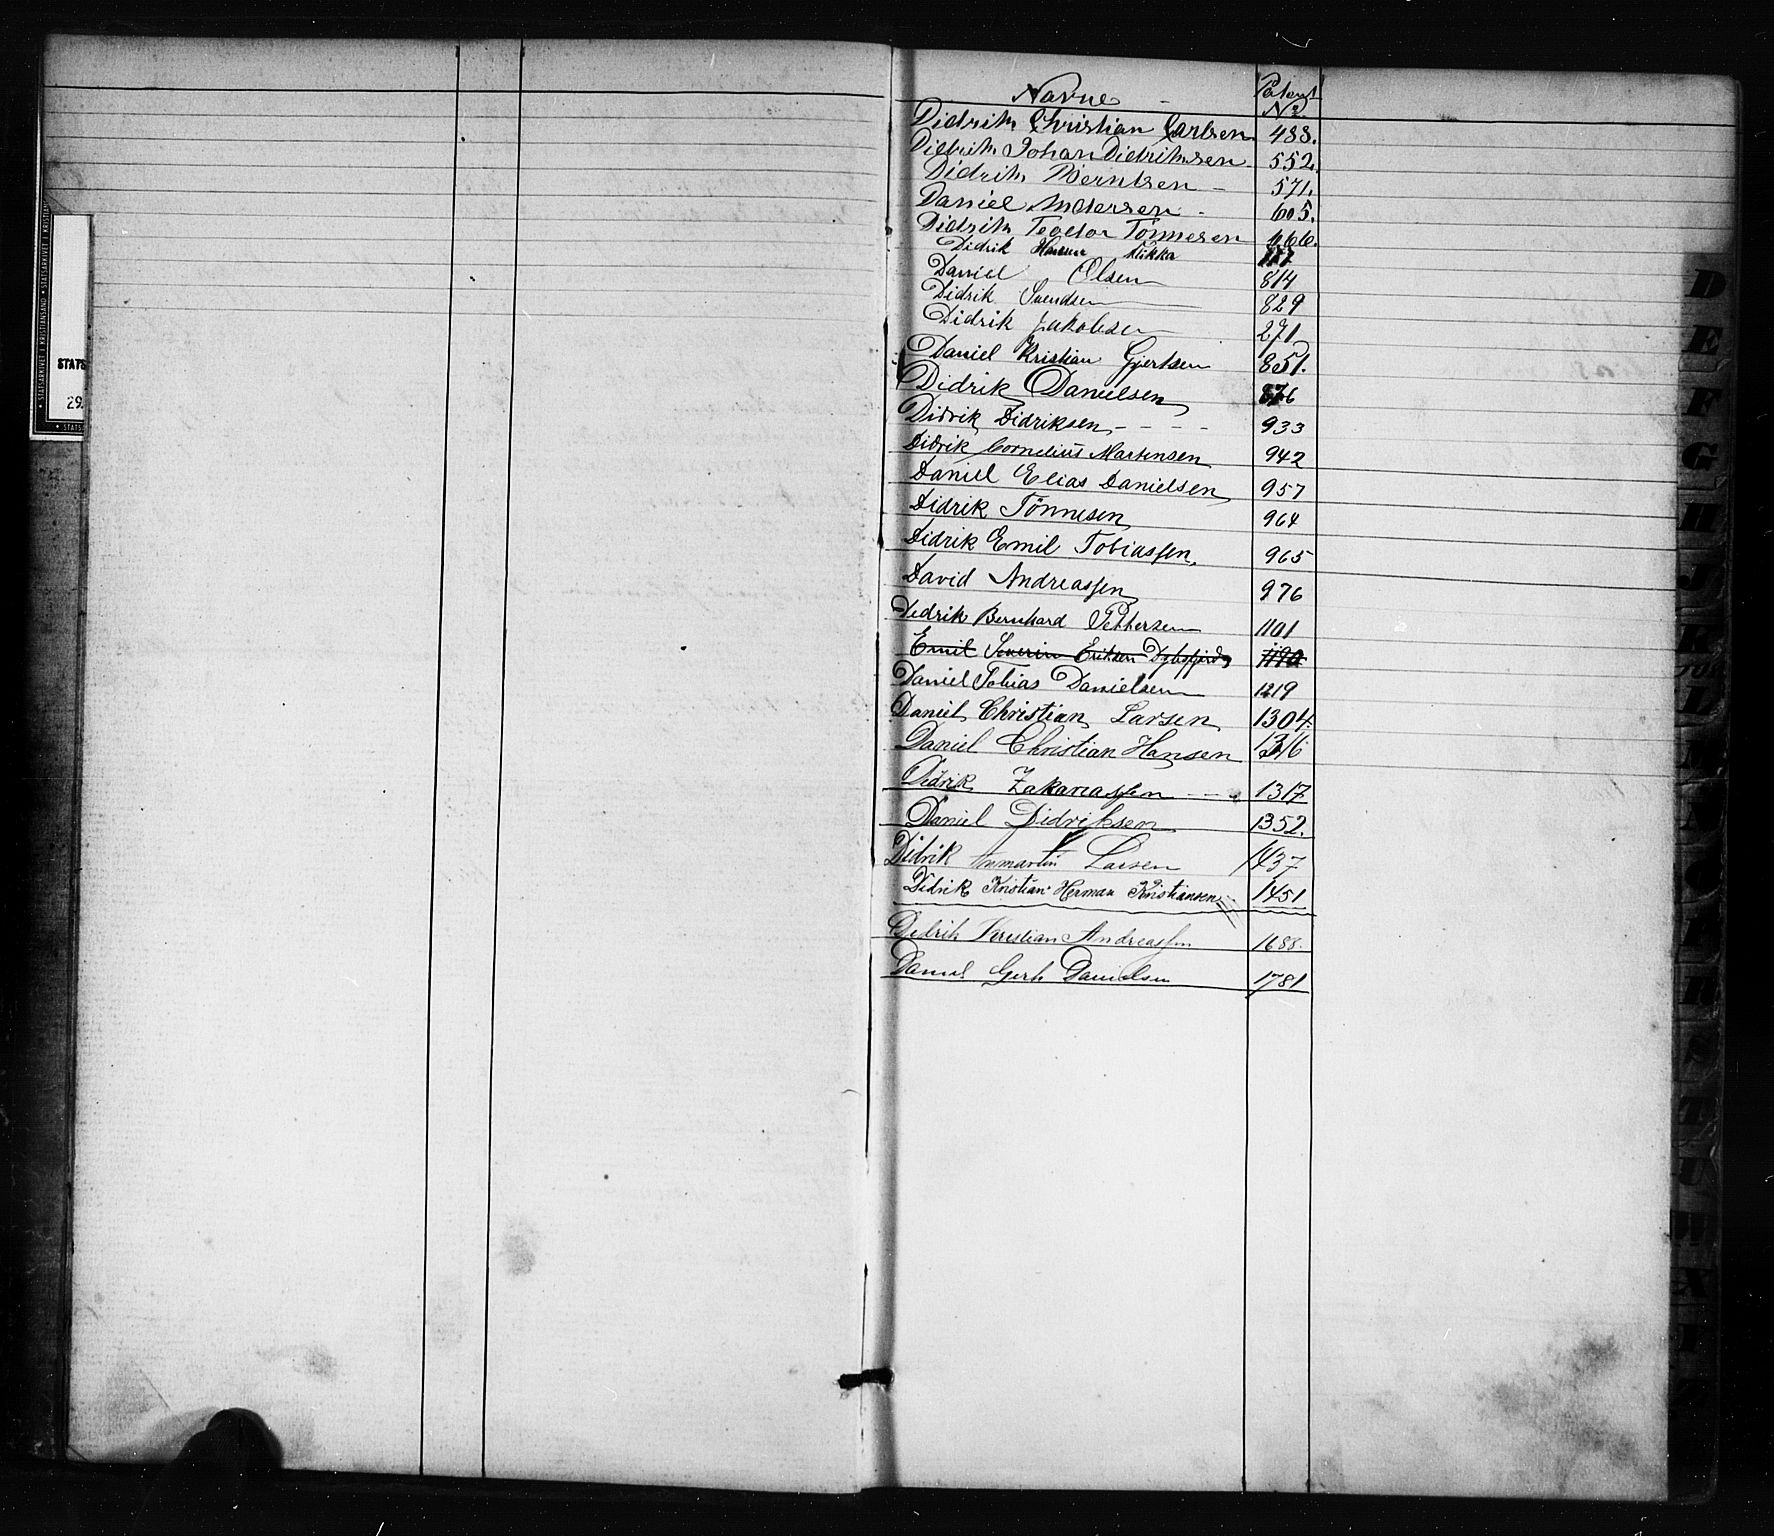 Navne Patent
No
Didrik Christian Carlsen 488.
Didrik Johan Didriksen 552.
Didrik Berntsen 571.
Daniel Andersen 605.
Didrik Teodor Tønnesen 666.
Didrik Hansen
Daniel Olsen 814
Didrik Svendsen 829
Didrik Jakobsen 271
Daniel Kristian Gjertsen 851.
Didrik Danielsen 876
Didrik Didriksen 933
Didrik Cornelius Martensen 942
Daniel Elias Danielsen 957
Didrik Tönnesen 964
Didrik Emil Tobiassen 965
David Andreassen 976
Didrik Bernhard Pettersen 1101
Emil Severin Eriksen 1190
Daniel Tobias Danielsen 1219
Daniel Christian Larsen 1304.
Daniel Christian Hansen 1316
Didrik Zakareassen 1317
Daniel Didriksen 1352.
Didrik Larsen 1437
Didrik Kristian Herman Kristiansen 1451
Didrik Kristian Andreassen 1688.
Daniel Gerh Danielsen 1781
STATS
29.
STATSARKIVET I KRISTIANSAND
D
E
F
G
H
J
K
L
M
N
O
P
R
S
T
U
W
X
Y
Z